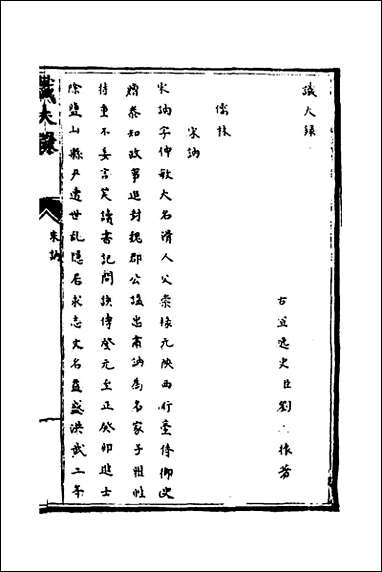 識大録
古益逸史臣劉振撰
儒林
宋訥
宋訥字仲敏大名滑人父崇禄元陝西行臺侍御史
贈叅知政事追封魏郡公諡忠肅訥為名家子雅性
持重不妄言笑讀書記問該博登元至正癸卯進士
除鹽山縣尹遭世亂隱居求志文名益盛洪武二年
識大録
宋訥